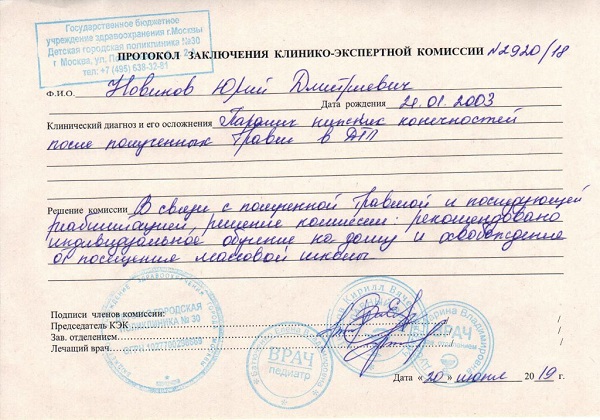 Государственное бюджетное
учреждение здравоохранения г.Москвы
Детская городская поликлиника №30
г. Москва, ул.
тел: +7 (495) 638-32-81
ПРОТОКОЛ ЗАКЛЮЧЕНИЯ КЛИНИКО-ЭКСПЕРТНОЙ КОМИССИИ №2920/18
Ф.И.О. Новинов Юрий Дмитриевич
Дата рождения 21.01.2003
Клинический диагноз и его осложнения Паралич нижних конечностей
после полученных травм в ДТП
Решение комиссии В связи с полученной травмой и последующей
реабилитацией, решение комиссии: рекомендовано
индивидуальное обучение на дому и освобождение
от посещения массовой школы
Подписи членов комиссии:
Председатель КЭК
Зав. отделением.
Лечащий врач.
ГОРОДСКАЯ
ПОЛИКЛИНИКА № 30
ВРАЧ
педиатр
Кирилл
ВРАЧ
Владимировна
Дата «20» июня 2019 г.